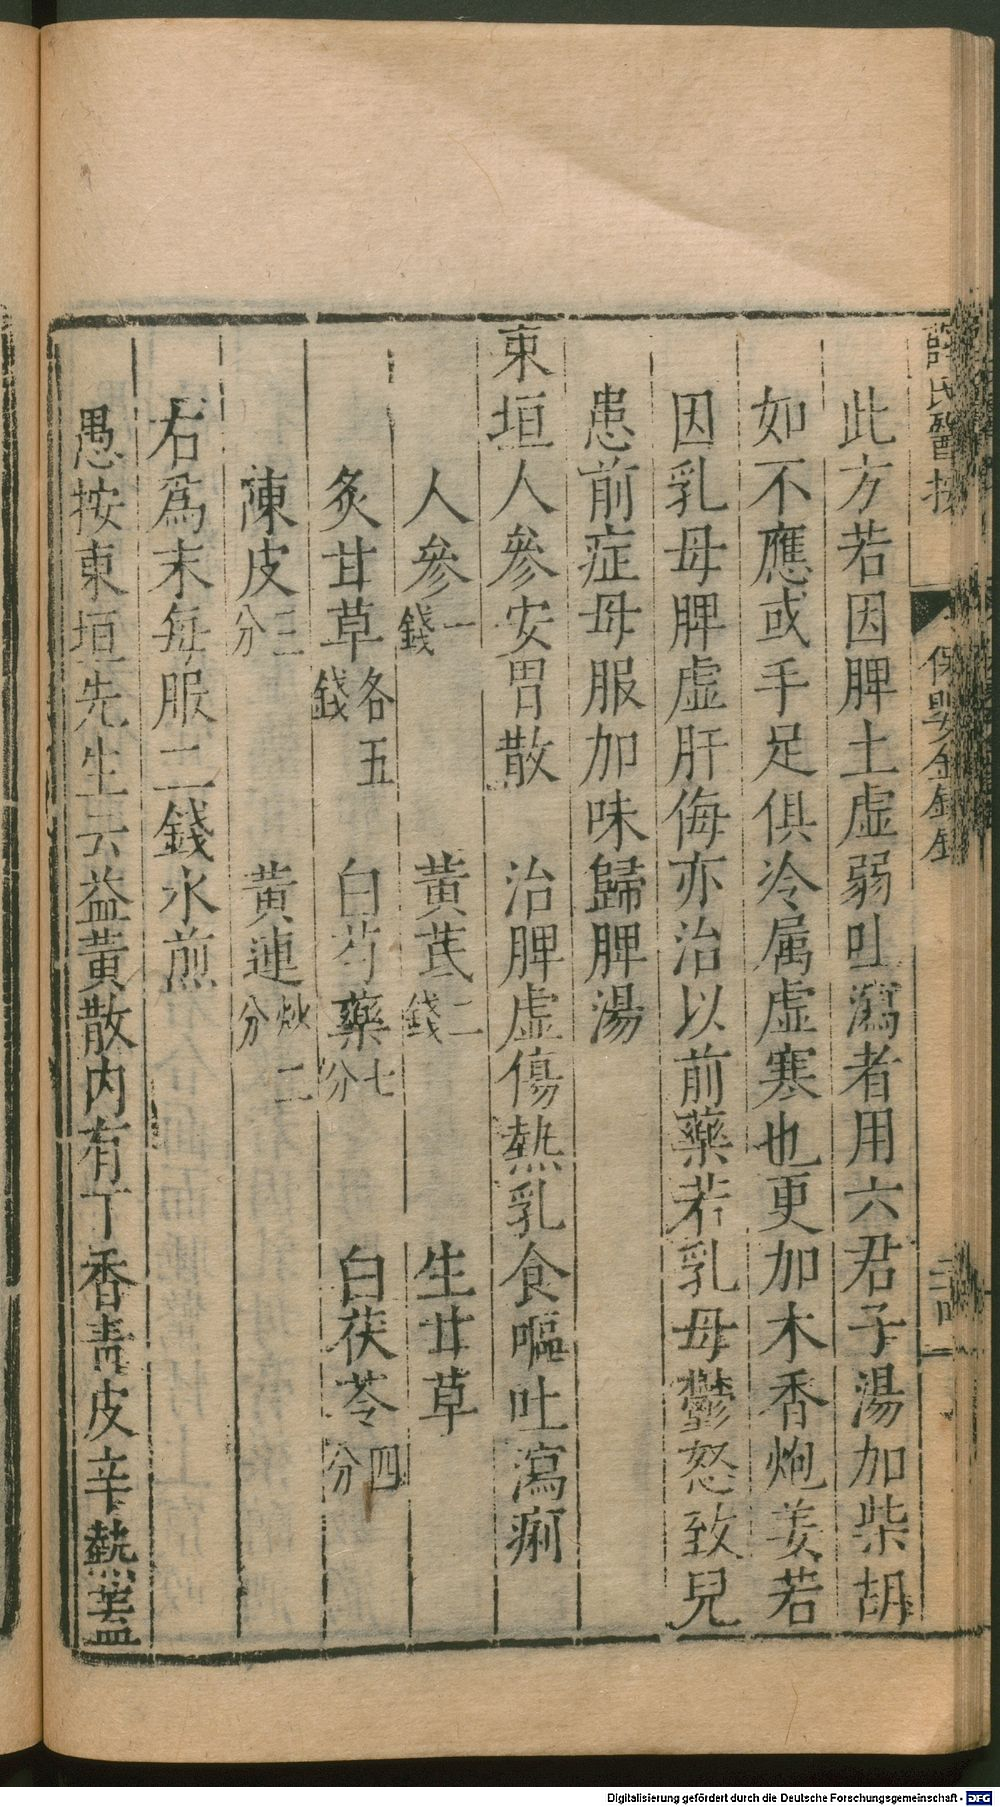 薛氏醫按
保嬰金鏡錄
此方若因脾土虛弱吐瀉者用六君子湯加柴胡
如不應或手足俱冷属虛寒也更加木香炮姜若
因乳母脾虛肝侮亦治以前藥若乳母鬱怒致兒
患前症母服加味歸脾湯
東垣人參安胃散　治脾虛傷熱乳食嘔吐瀉痢
人參一錢　黃芪二錢　生甘草
炙甘草各五錢　白芍藥七分　白茯苓四分
陳皮三分　黃連炒二分
右爲末每服二錢水煎
愚按東垣先生云益黃散内有丁香青皮辛熱蓋
Digitalisierung gefördert durch die Deutsche Forschungsgemeinschaft - DFG